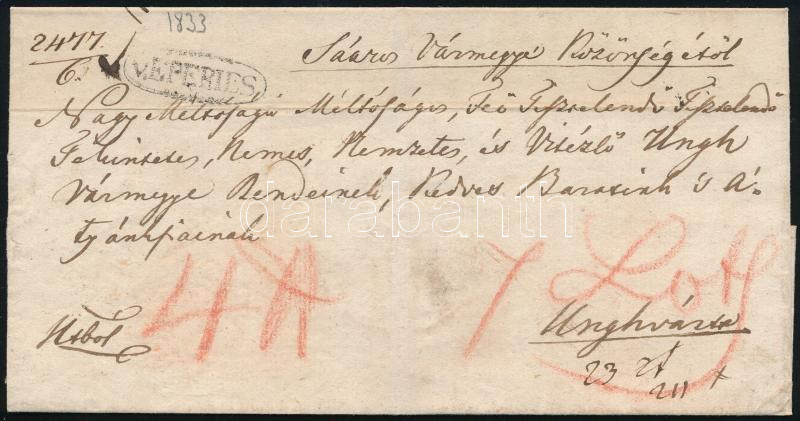 1833
2477.
6.
V. EPERIES.
Sáaros Vármegye Közönségétől
Nagy Méltóságú Méltóságos, Feő Tisztelendő Tisztelendő
Tekintetes, Nemes, Nemzetes, és Vitézlő Ungh
Vármegye Rendeinek, Kedves Barátink 's A-
tyánkfiainak
darabanth
4 7 Lot
Unghvárra
23